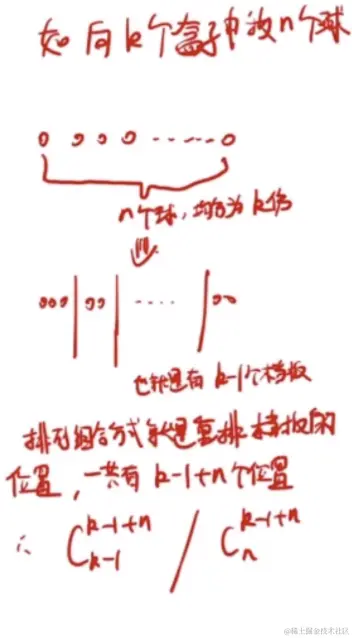 如向k个盒子中放n个球
n个球,均分为k份
也就是有k-1个档板
排列组合方式就是重排档板的
位置,一共有k-1+n个位置
∴ C_{k-1}^{k-1+n} / C_{n}^{k-1+n}
@稀土掘金技术社区